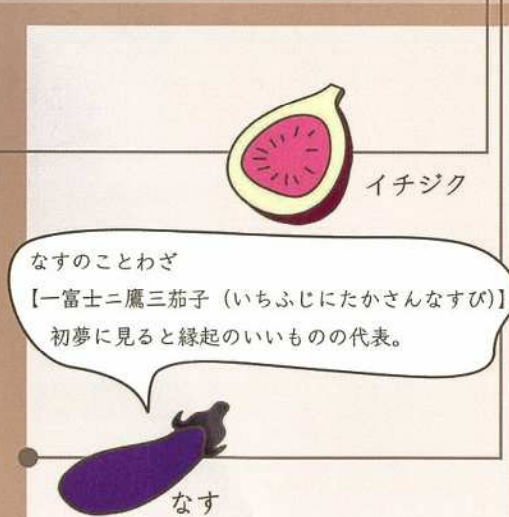 イチジク
なすのことわざ
【一富士ニ鷹三茄子（いちふじにたかさんなすび）】
初夢に見ると縁起のいいものの代表。
なす